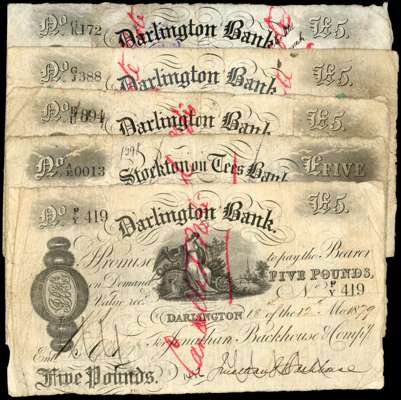 No. C/K 172 Darlington Bank. £5.
No. G/J 388 Darlington Bank. £5.
No. 694 Darlington Bank. £5.
No. A/K 0013 Stockton on Tees Bank £FIVE
No. P/Y 419 Darlington Bank. £5.
I Promise to pay the Bearer
on Demand FIVE POUNDS,
Value rec.d No. P/Y 419
DARLINGTON 18 of the 12 Mo. 1879
For Jonathan Backhouse & Compy.
Ent.d
Five Pounds. Jonathan Backhouse